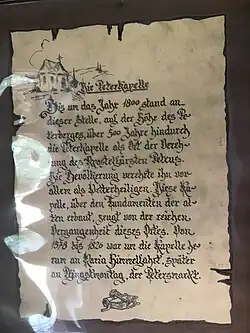 Die Peterkapelle
Bis um das Jahr 1800 stand an
dieser Stelle, auf der Höhe des Pe-
terberges, über 500 Jahre hindurch
die Peterkapelle als Ort der Vereh-
rung des Apostelfürsten Petrus.
Die Bevölkerung verehrte ihn vor
allem als Wetterheiligen. Diese Ka-
pelle, über den Fundamenten der al-
ten erbaut, zeugt von der reichen
Vergangenheit dieses Ortes. Von
1578 bis 1820 war um die Kapelle he-
rum an Maria Himmelfahrt, später
an Pfingstmontag, der Petersmarkt.